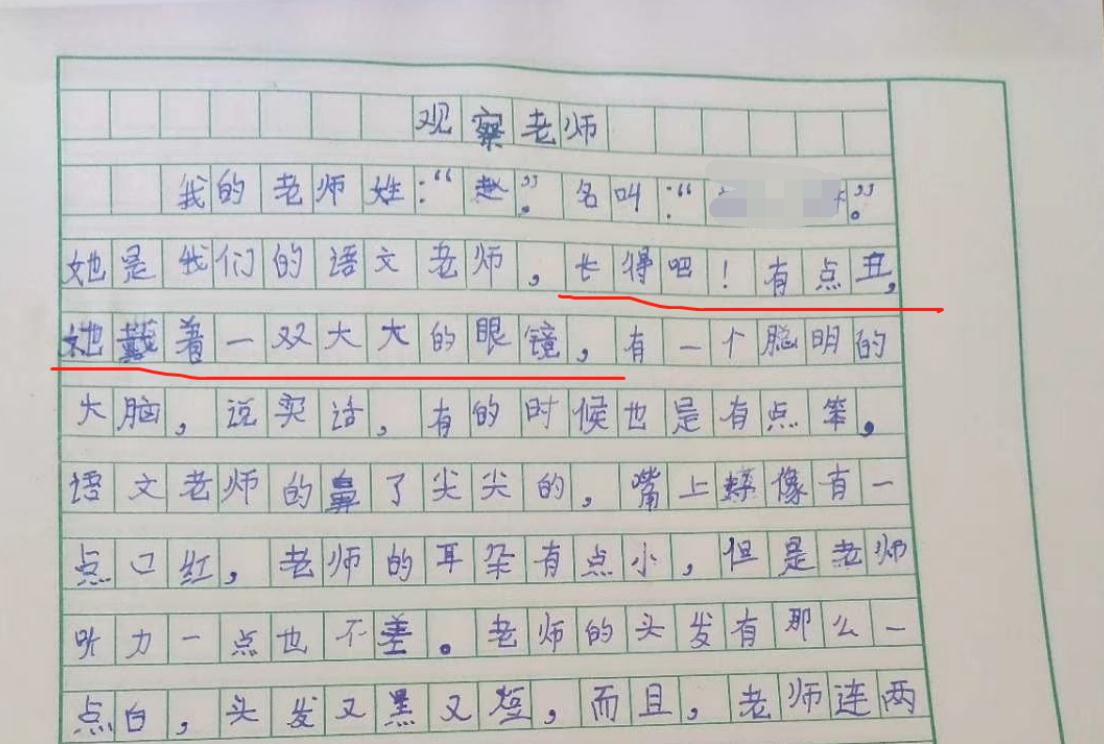 观察老师
我的老师姓:“赵”.名叫:“ ”。
她是我们的语文老师,长得吧!有点丑,
她戴着一双大大的眼镜,有一个聪明的
大脑,说实话,有的时候也是有点笨。
语文老师的鼻了尖尖的,嘴上好像有一
点口红,老师的耳朵有点小,但是老师
听力一点也不差。老师的头发有那么一
点白,头发又黑又短,而且,老师连两